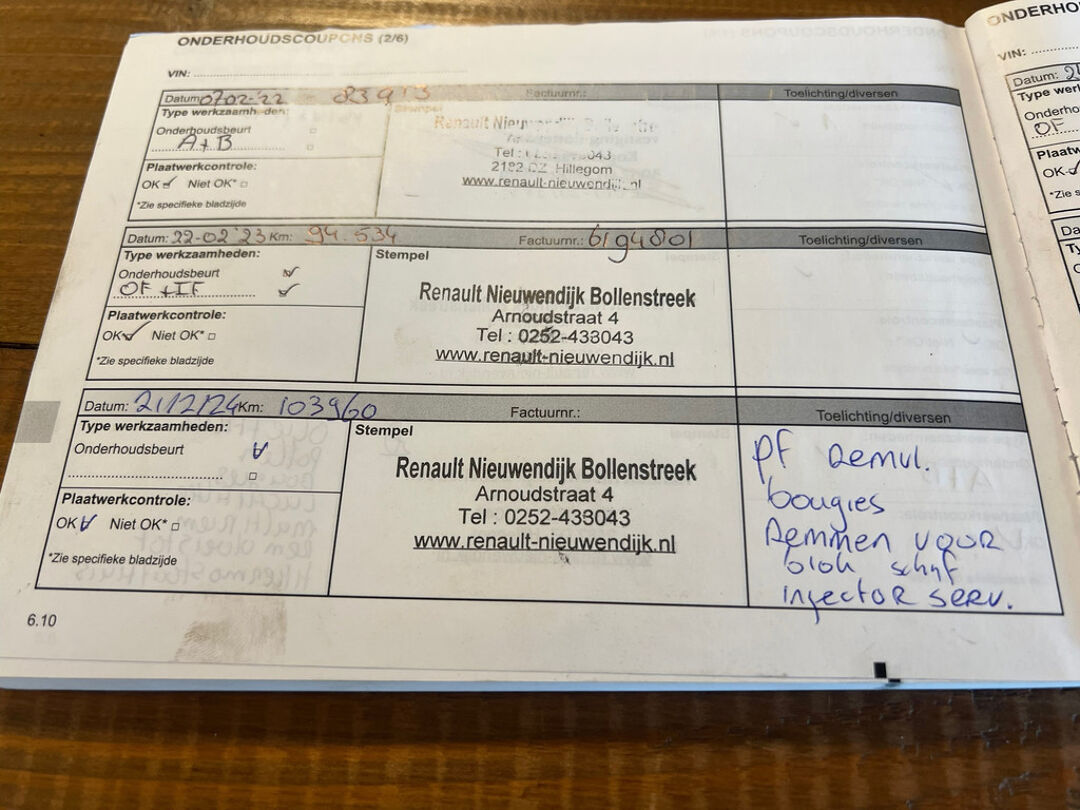 ONDERHOUDSCOUPONS (2/6)
VIN:
Datum: 07-02-'22 83913 Factuurnr.: Toelichting/diversen
Type werkzaamheden: Stempel
Onderhoudsbeurt
A+B
Renault Nieuwendijk Bollenstreek
Tel : 043
2182 CZ Hillegom
www.renault-nieuwendijk.nl
Plaatwerkcontrole:
OK Niet OK*
*Zie specifieke bladzijde
Datum: 22-02'23 Km: 94.534 Factuurnr.: 6194801 Toelichting/diversen
Type werkzaamheden: Stempel
Onderhoudsbeurt
OF + IF
Renault Nieuwendijk Bollenstreek
Arnoudstraat 4
Tel : 0252-433043
www.renault-nieuwendijk.nl
Plaatwerkcontrole:
OK Niet OK*
*Zie specifieke bladzijde
Datum: 21/2/24 Km: 103960 Factuurnr.: Toelichting/diversen
Type werkzaamheden: Stempel
Onderhoudsbeurt
Renault Nieuwendijk Bollenstreek
Arnoudstraat 4
Tel : 0252-433043
www.renault-nieuwendijk.nl
Plaatwerkcontrole:
OK Niet OK*
*Zie specifieke bladzijde
PF Remvl.
bougies
Remmen voor
blok schijf
injector serv.
6.10
ONDERHO
VIN:
Datum: 2
Type werk
Onderho
OF
Plaatw
OK
*Zie s
Da
Ty